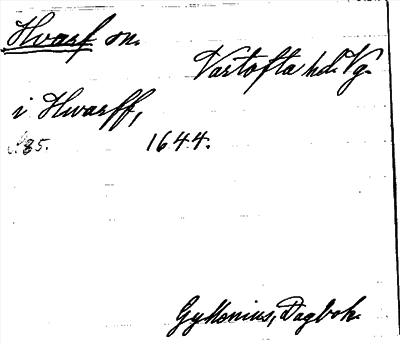 Hvarf sn.
Vartofta hd. Vg.
i Hwarff,
s. 85. 1644.
Gyllenius, Dagbok.